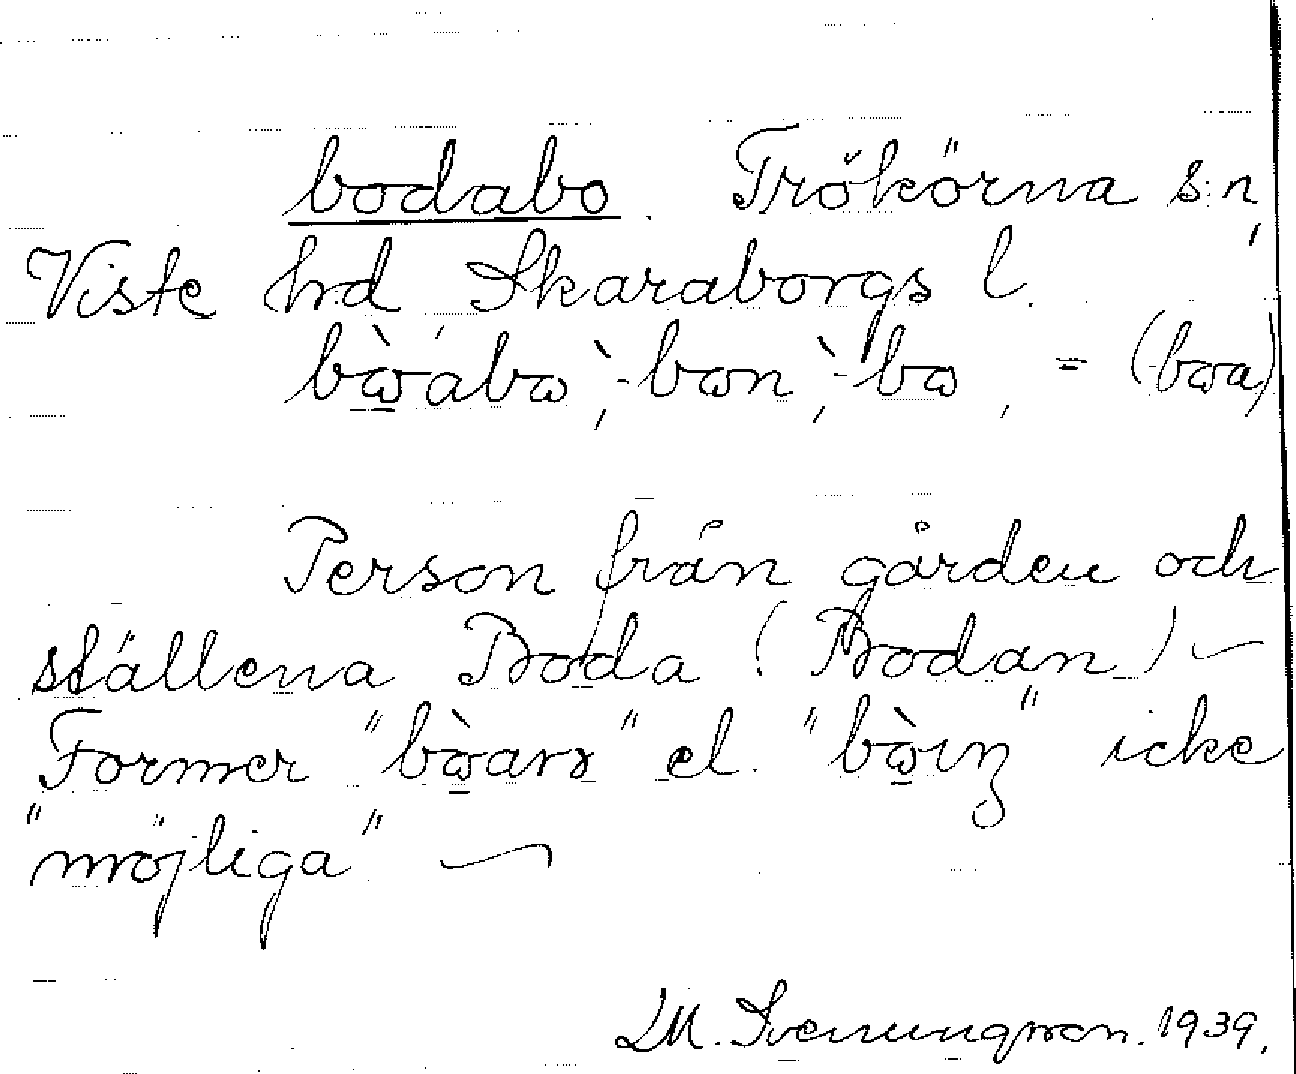 bodabo. Trökörna s:n,
Viste hd Skaraborgs l.
bɷ̀ábɷ, -bɷn, -bɷ, = (bɷa)
Person från gården och
ställena Boda (Bodan) —
Former "bɷ̀arɘ" el. "bɷ̀ıŋ" icke
"möjliga" —
LM. Svenungsson. 1939.